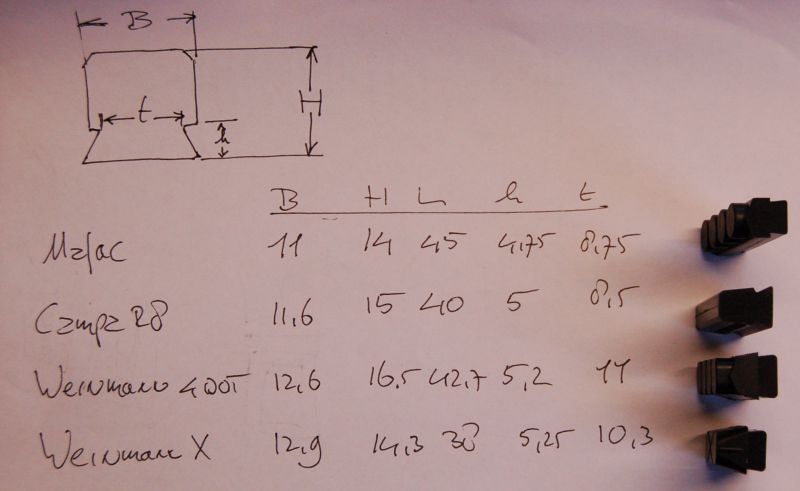 B
t
h
H
B H L h t
Mafac 11 14 45 4,75 8,75
Campa 28 11,6 15 40 5 8,5
Weinmann 400T 12,6 16,5 42,7 5,2 11
Weinmann X 12,9 14,3 38 5,25 10,3